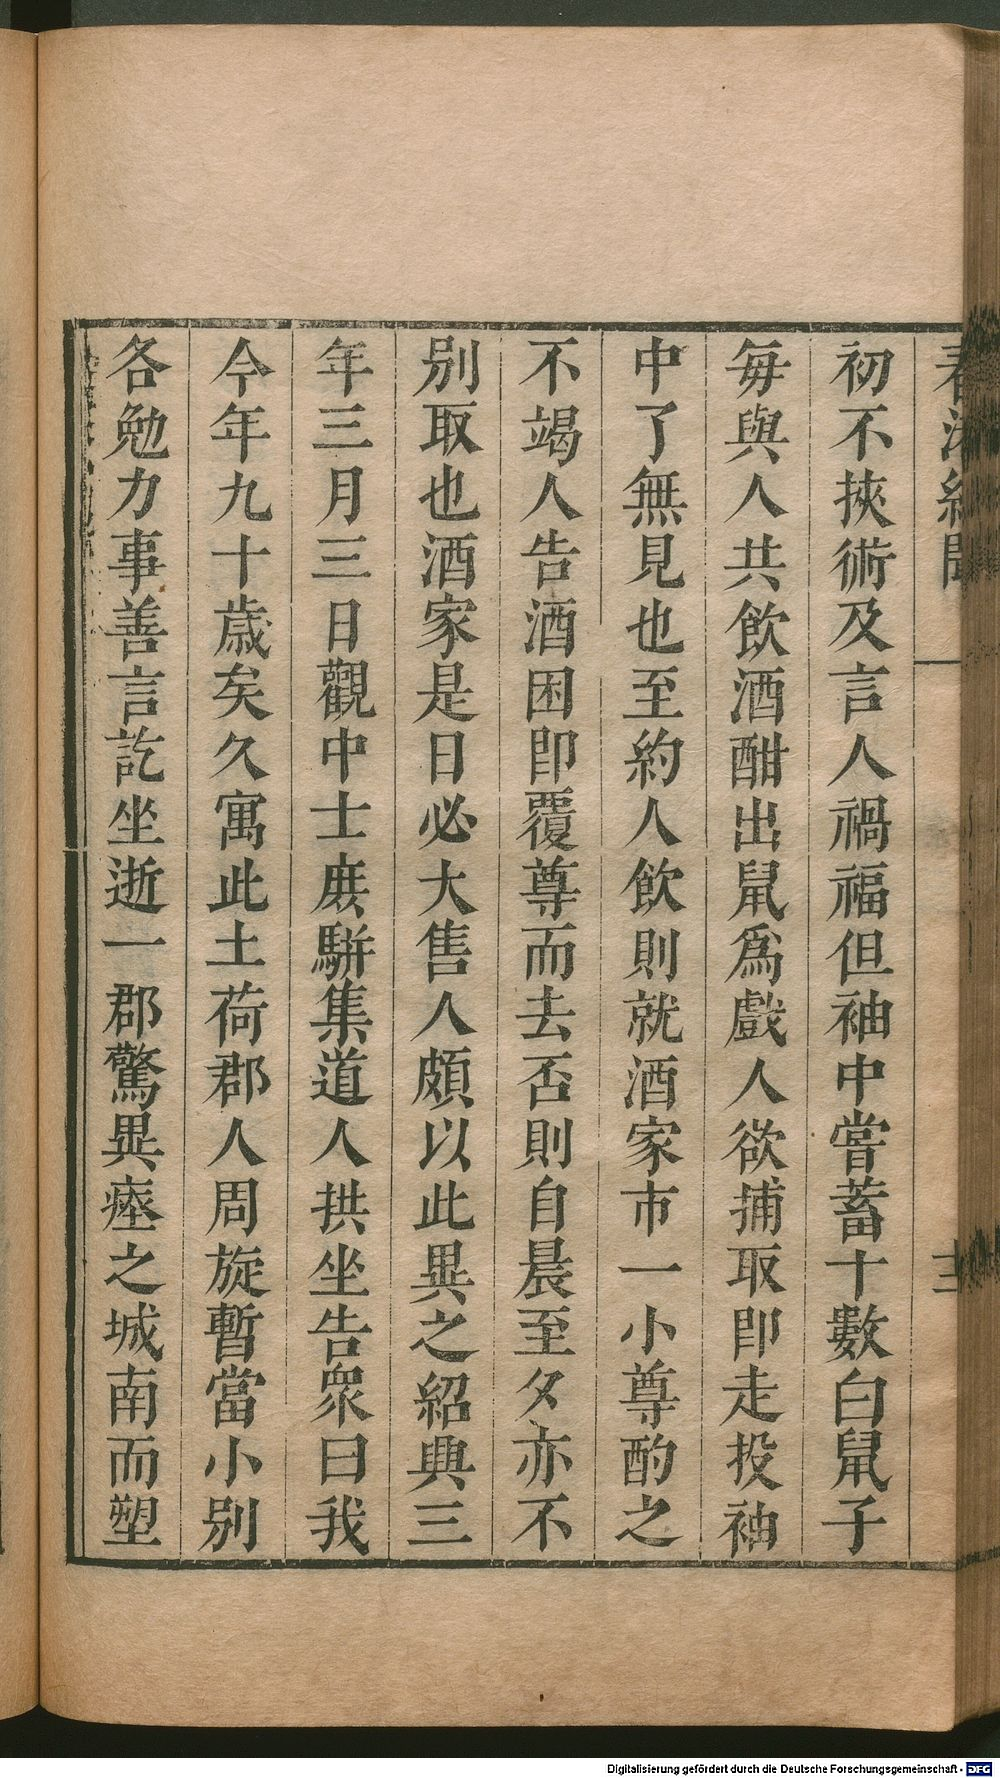 初不挾術及言人禍福但袖中嘗蓄十數白鼠子
每與人共飲酒酣出鼠爲戲人欲捕取即走投袖
中了無見也至約人飲則就酒家市一小尊酌之
不竭人告酒困即覆尊而去否則自晨至夕亦不
別取也酒家是日必大售人頗以此異之紹興三
年三月三日觀中士庶駢集道人拱坐告衆曰我
今年九十歲矣久寓此土荷郡人周旋暫當小別
各勉力事善言訖坐逝一郡驚異瘞之城南而塑
Digitalisierung gefördert durch die Deutsche Forschungsgemeinschaft - DFG